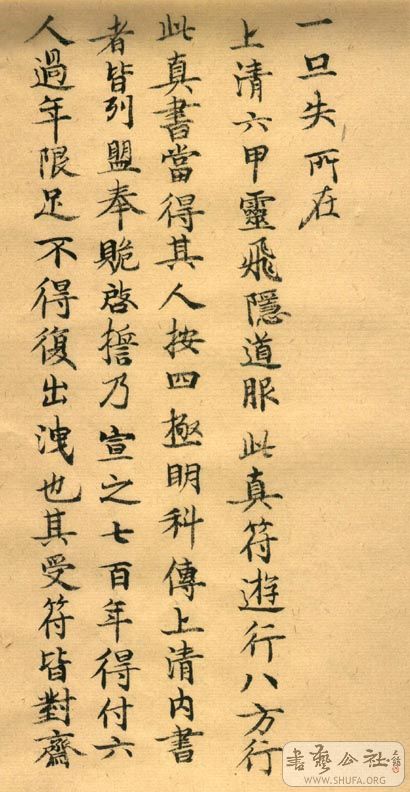 一旦失所在
上清六甲靈飛隱道服此真符遊行八方行
此真書當得其人按四極明科傳上清內書
者皆列盟奉贶啓誓乃宣之七百年得付六
人過年限足不得復出洩也其受符皆對齋
書藝公社
WWW.SHUFA.ORG